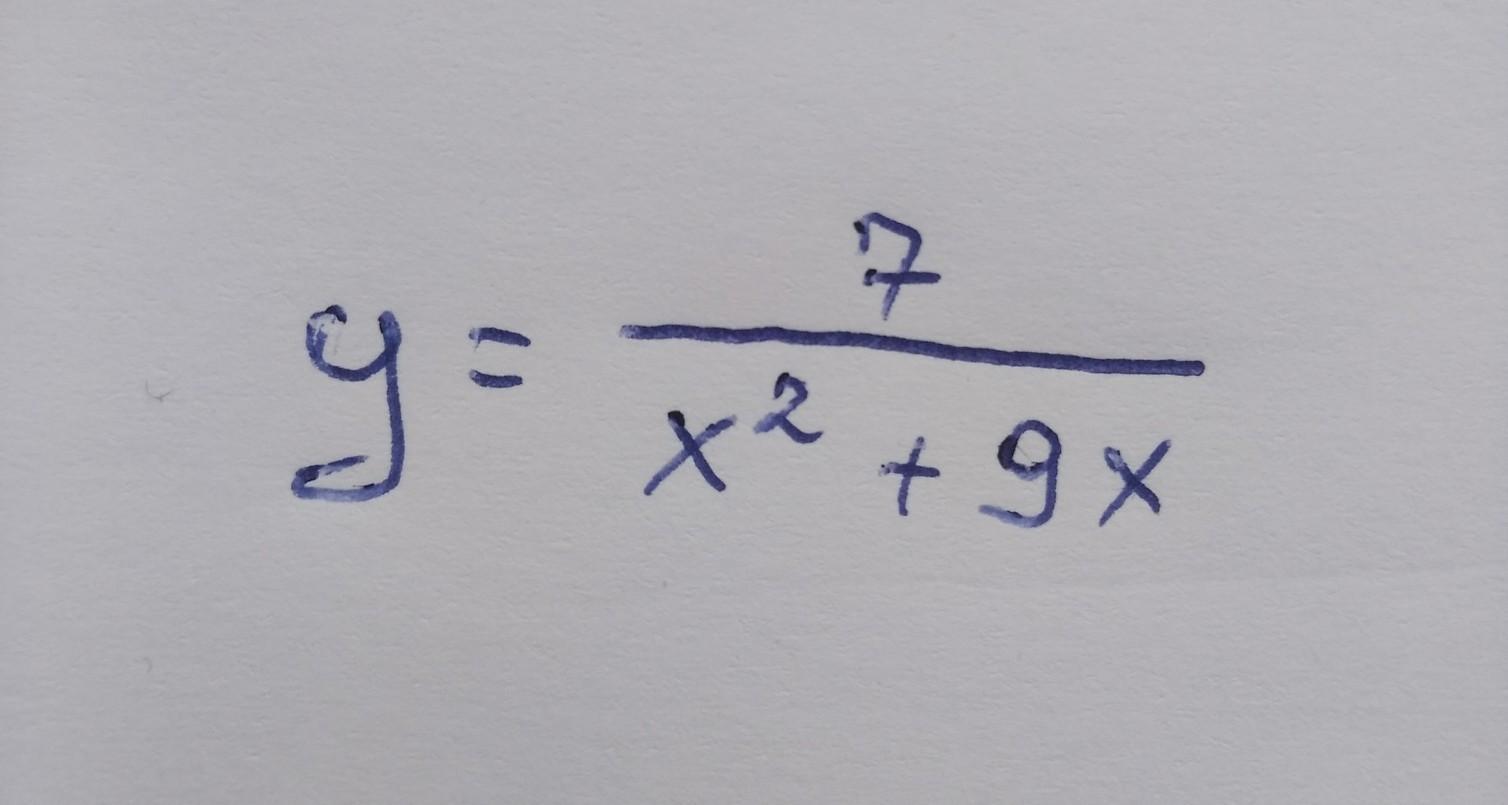 y = 7 / (x² + 9x)